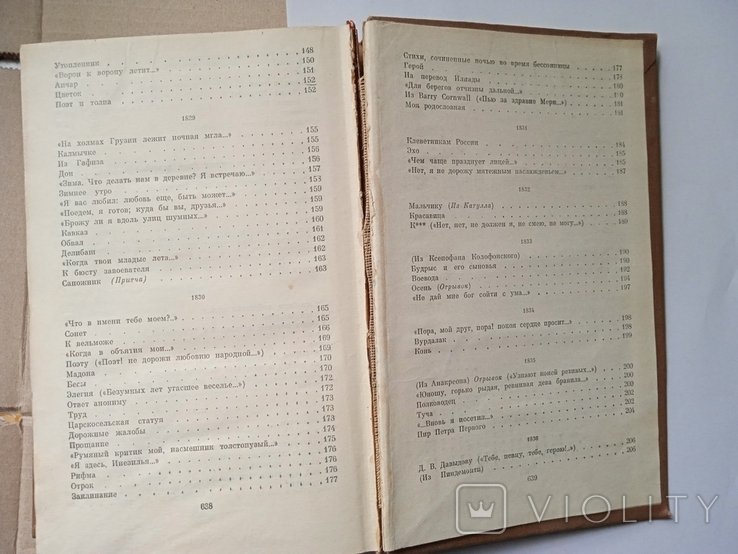 Утопленник 148
«Ворон к ворону летит...» 150
Анчар 151
Цветок 152
Поэт и толпа 152
1829
«На холмах Грузии лежит ночная мгла...» 155
Калмычке 155
Из Гафиза 156
Дон 156
«Зима. Что делать нам в деревне? Я встречаю...» 157
Зимнее утро 158
«Я вас любил: любовь еще, быть может...» 159
«Поедем, я готов; куда бы вы, друзья...» 159
«Брожу ли я вдоль улиц шумных...» 159
Кавказ 160
Обвал 161
Делибаш 162
«Когда твои младые лета...» 162
К бюсту завоевателя 163
Сапожник (Притча) 163
1830
«Что в имени тебе моем?..» 165
Сонет 165
К вельможе 166
«Когда в объятия мои...» 169
Поэту («Поэт! не дорожи любовию народной...») 169
Мадона 170
Бесы 170
Элегия («Безумных лет угасшее веселье...») 172
Ответ анониму 172
Труд 173
Царскосельская статуя 173
Дорожные жалобы 173
Прощание 174
«Румяный критик мой, насмешник толстопузый...» 175
«Я здесь, Инезилья...» 176
Рифма 176
Отрок 176
Заклинание 177
638
Стихи, сочиненные ночью во время бессонницы 177
Герой 178
На перевод Илиады 180
«Для берегов отчизны дальной...» 180
Из Barry Cornwall («Пью за здравие Мери...») 181
Моя родословная 181
1831
Клеветникам России 184
Эхо 185
«Чем чаще празднует лицей...» 185
«Нет, я не дорожу мятежным наслажденьем...» 187
1832
Мальчику (Из Катулла) 188
Красавица 188
К*** («Нет, нет, не должен я, не смею, не могу...») 189
1833
(Из Ксенофана Колофонского) 190
Будрыс и его сыновья 190
Воевода 192
Осень (Отрывок) 194
«Не дай мне бог сойти с ума...» 197
1834
«Пора, мой друг, пора! покоя сердце просит...» 198
Вурдалак 198
Конь 199
1835
(Из Анакреона) Отрывок («Узнают коней ретивых...») 200
«Юношу, горько рыдая, ревнивая дева бранила...» 200
Полководец 200
Туча 202
«...Вновь я посетил...» 202
Пир Петра Первого 204
1836
Д. В. Давыдову («Тебе, певцу, тебе, герою!..») 206
(Из Пиндемонти) 206
639
VIOLITY